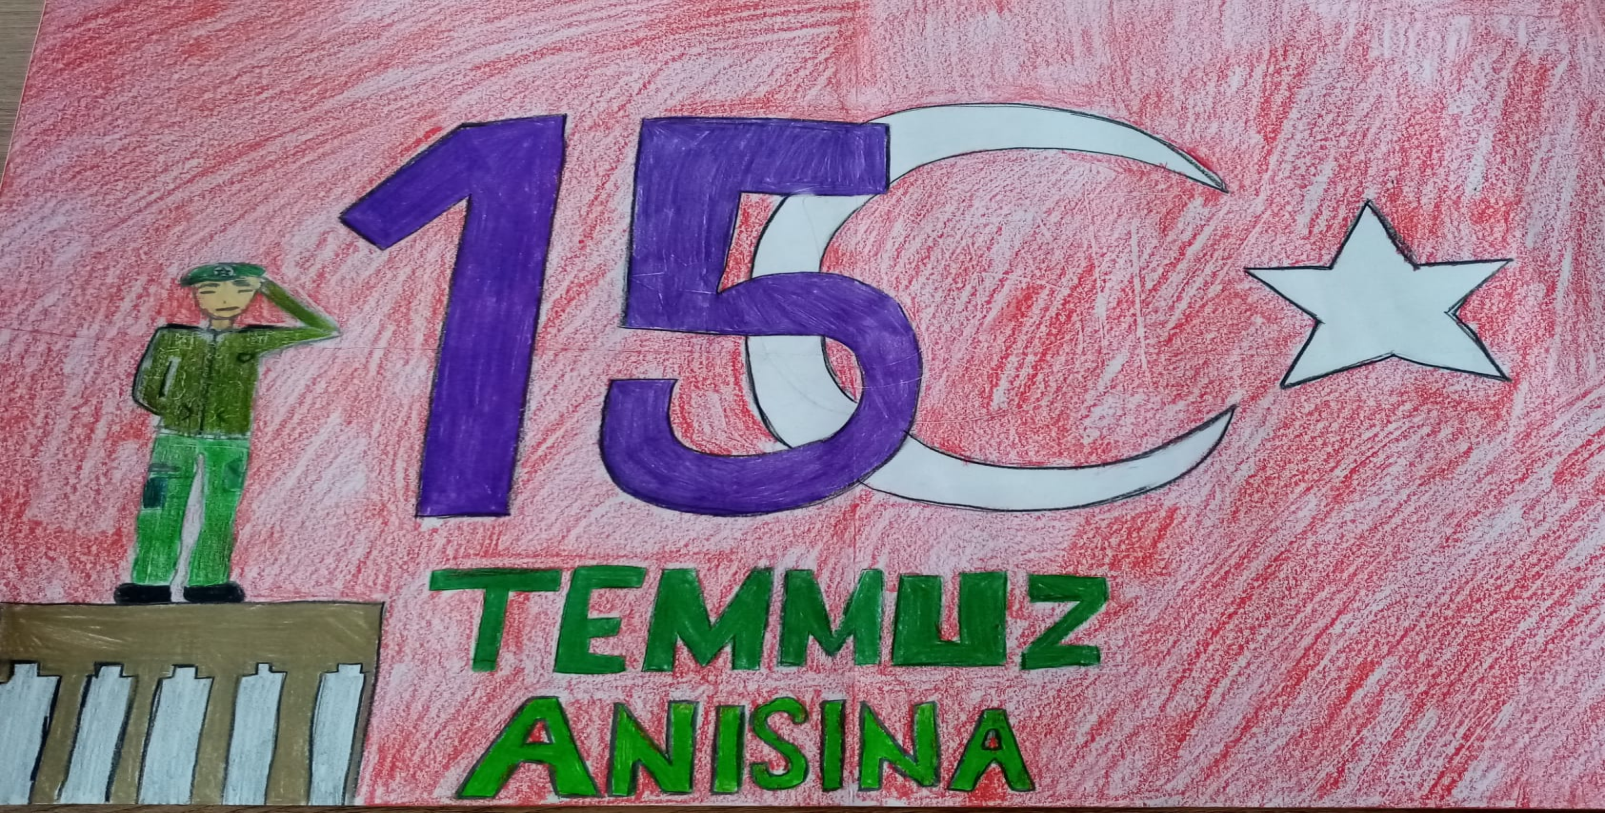 15
TEMMUZ
ANISINA